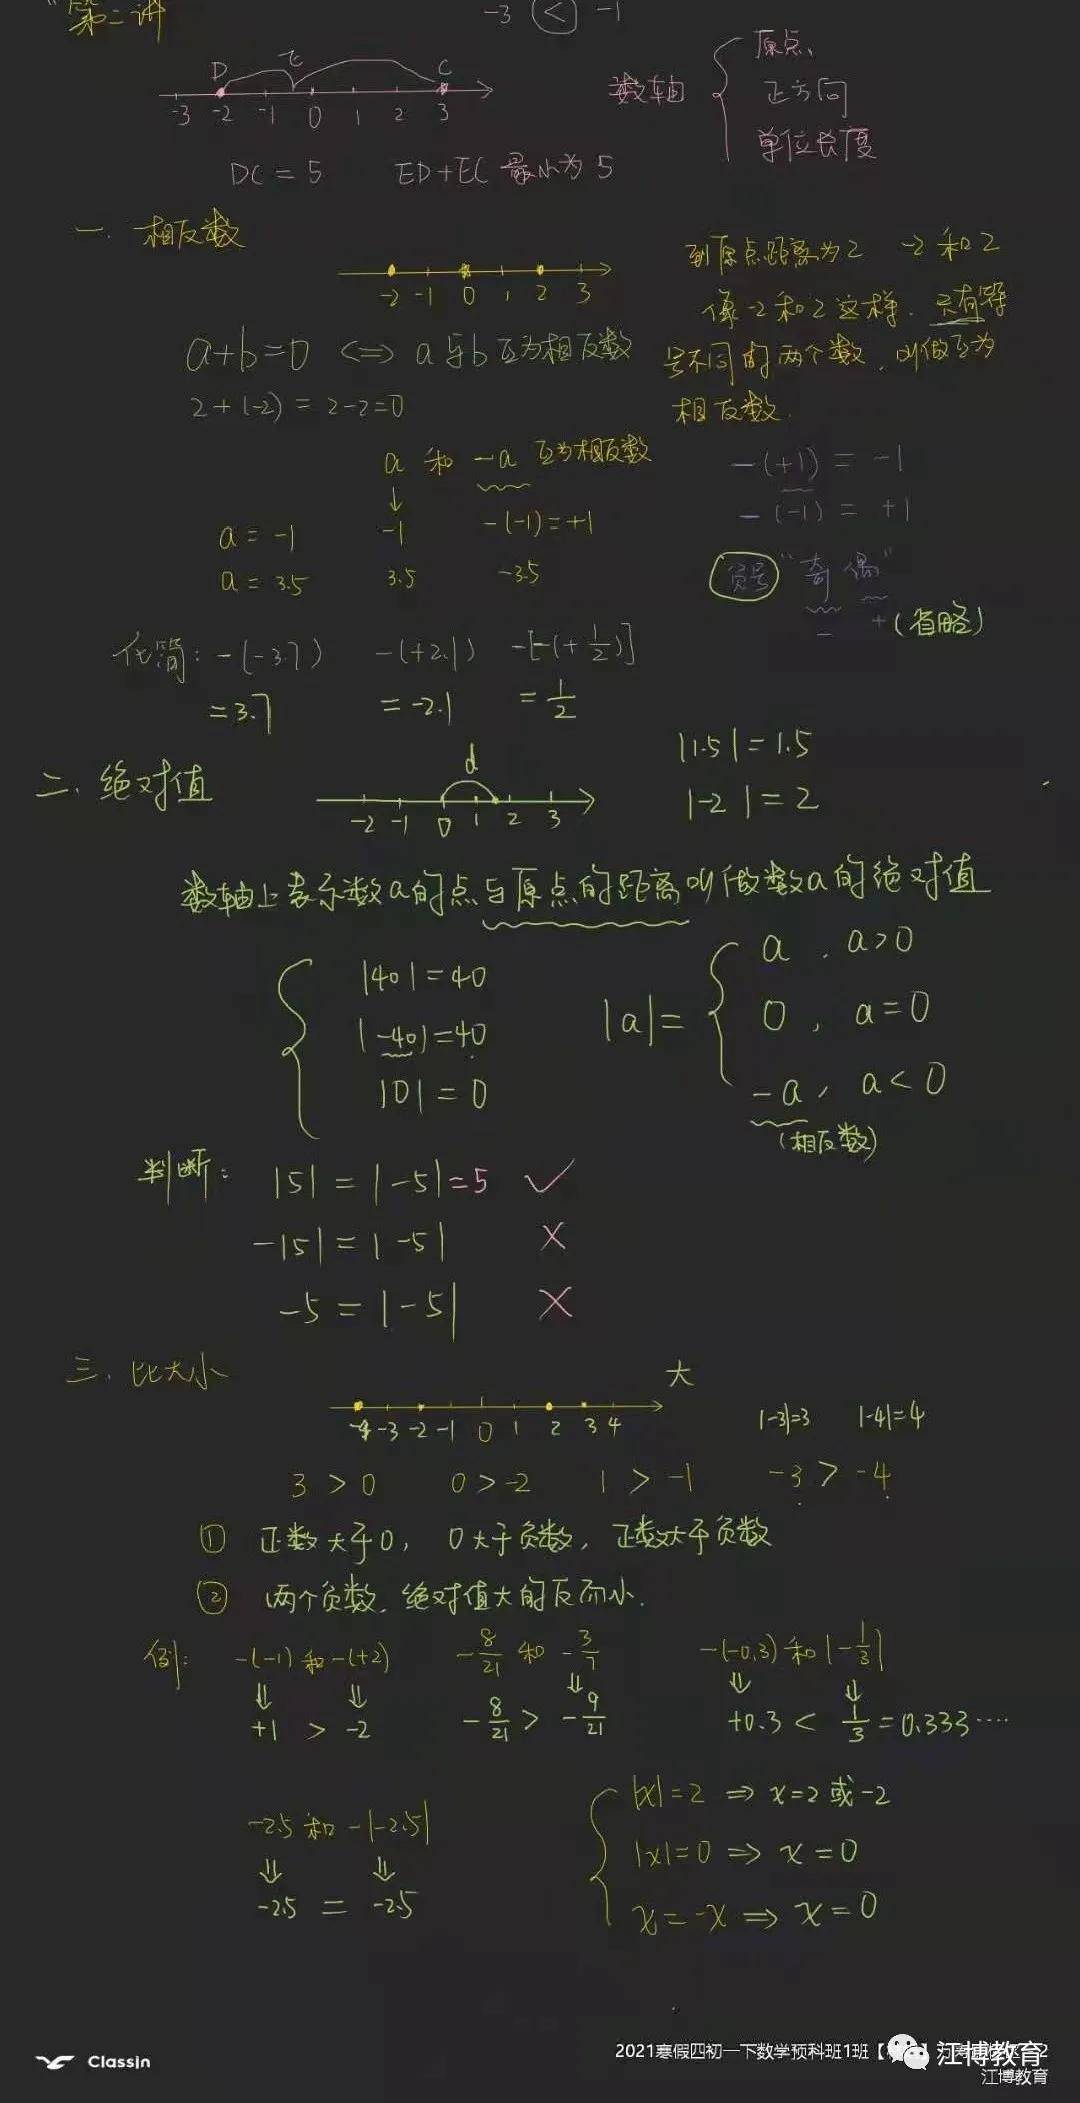 第二讲
-3 < -1
D E C
-3 -2 -1 0 1 2 3
数轴
原点、
正方向
单位长度
DC = 5 ED+EC 最小为 5
一. 相反数
-2 -1 0 1 2 3
到原点距离为2 -2 和 2
像-2和2这样. 只有符
号不同的两个数, 叫做互为
相反数.
a+b=0 <=> a与b互为相反数
2+(-2) = 2-2=0
a 和 -a 互为相反数
↓
a = -1 -1 -(-1)=+1
a = 3.5 3.5 -3.5
-(+1) = -1
-(-1) = +1
负号 “奇 偶”
- + (省略)
化简: -(-3.7) -(+2.1) -[-(+1/2)]
=3.7 =-2.1 =1/2
二. 绝对值
d
-2 -1 0 1 2 3
|1.5|=1.5
|-2|=2
数轴上表示数a的点与原点的距离叫做数a的绝对值
|40|=40
|-40|=40
|0|=0
|a|=
a , a>0
0 , a=0
-a, a<0
(相反数)
判断: |5| = |-5|=5 ✓
-|5| = |-5| ×
-5 = |-5| ×
三. 比大小
大
-4 -3 -2 -1 0 1 2 3 4
|-3|=3 |-4|=4
3 > 0 0 > -2 1 > -1 -3 > -4
① 正数大于0, 0大于负数, 正数大于负数
② 两个负数, 绝对值大的反而小.
例: -(-1) 和 -(+2) -8/21 和 -3/7 -(-0.3) 和 |-1/3|
⇓ ⇓ ⇓ ⇓ ⇓
+1 > -2 -8/21 > -9/21 +0.3 < 1/3 = 0.333····
-2.5 和 -|-2.5|
⇓ ⇓
-2.5 = -2.5
|x|=2 ⇒ x=2 或 -2
|x|=0 ⇒ x=0
x=-x ⇒ x=0
ClassIn
2021寒假四初一下数学预科班1班【
江博教育
2
江博教育